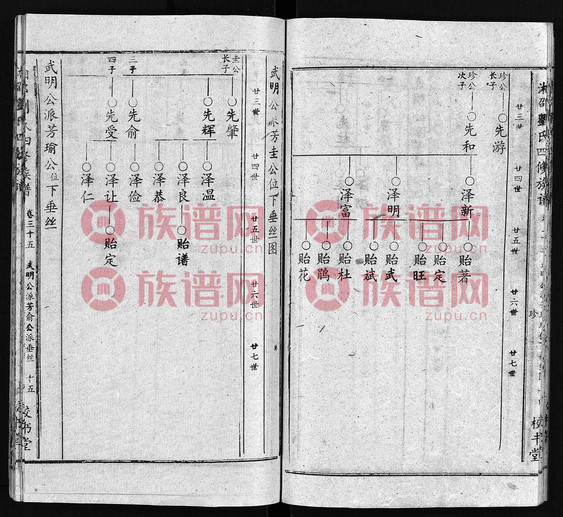 湘邵劉氏四修族譜
廿三世
廿四世
廿五世
廿六世
廿七世
珍公长子
先游
珍公次子
先和
泽新
泽明
泽富
贻著
贻定
贻旺
贻武
贻斌
贻杜
贻鹃
贻花
校书堂
武明公派芳圭公位下垂丝图
廿三世
廿四世
廿五世
廿六世
廿七世
圭公长子
先肇
先辉
三子
先俞
四子
先受
泽温
泽良
泽恭
泽俭
泽让
泽仁
贻谱
贻定
武明公派芳瑜公位下垂丝
卷三十五
武明公派芳俞公派垂丝
十五
校书堂
族谱网
zupu.cn
族谱网
zupu.cn
族谱网
zupu.cn
族谱网
zupu.cn